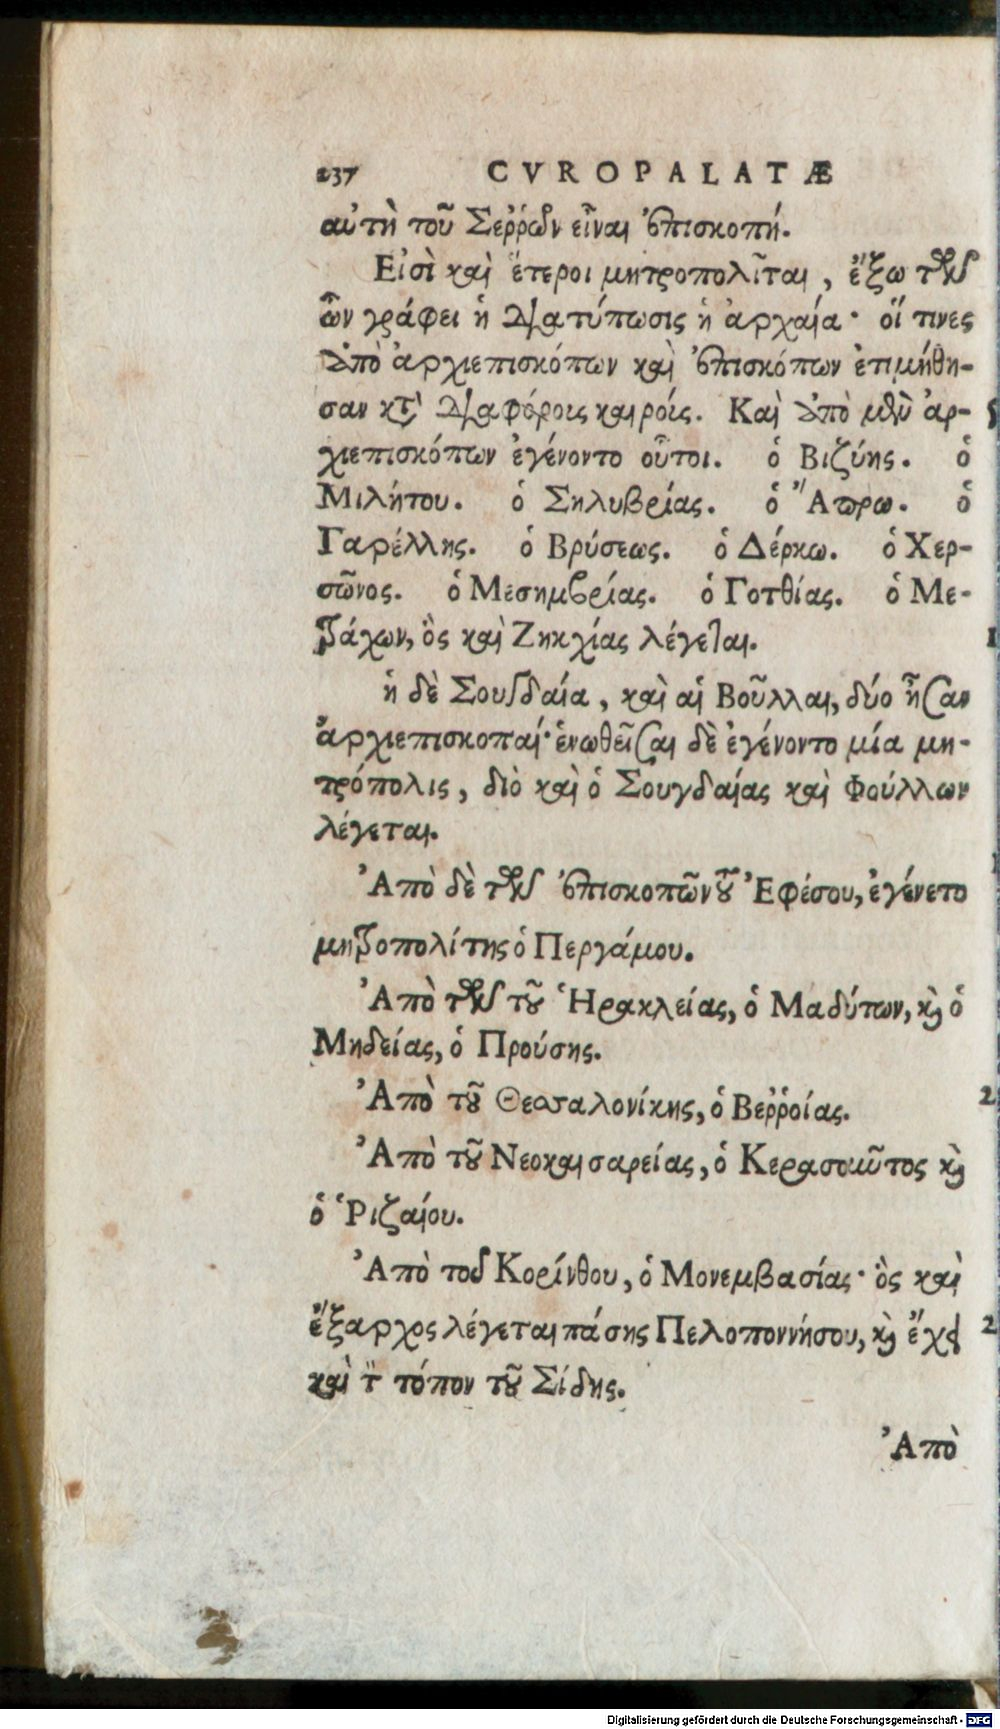 237 CVROPALATÆ
αὐτὴ τοῦ Σεῤῥῶν εἶναι ἐπισκοπή.
Εἰσὶ καὶ ἕτεροι μητροπολῖται, ἔξω τῶν
ὧν γράφει ἡ διατύπωσις ἡ ἀρχαία· οἵ τινες
ἀπὸ ἀρχιεπισκόπων καὶ ἐπισκόπων ἐτιμήθη-
σαν κτ διαφόροις καιροίς. Καὶ ἀπὸ μὲν ἀρ-
χιεπισκόπων ἐγένοντο οὗτοι. ὁ Βιζύης. ὁ
Μιλήτου. ὁ Σηλυβρίας. ὁ Ἄπρω. ὁ
Γαρέλλης. ὁ Βρύσεως. ὁ Δέρκω. ὁ Χερ-
σῶνος. ὁ Μεσημβρίας. ὁ Γοτθίας. ὁ Με-
τράχων, ὃς καὶ Ζηκχίας λέγεται.
ἡ δὲ Σουγδαία, καὶ αἱ Βοῦλλαι, δύο ἦσαν
ἀρχιεπισκοπαί· ἑνωθεῖσαι δὲ ἐγένοντο μία μη-
τρόπολις, διὸ καὶ ὁ Σουγδαίας καὶ Φούλλων
λέγεται.
Ἀπὸ δὲ τῶν ἐπισκοπῶν τοῦ Ἐφέσου, ἐγένετο
μητροπολίτης ὁ Περγάμου.
Ἀπὸ τῶν τοῦ Ἡρακλείας, ὁ Μαδύτων, καὶ ὁ
Μηδείας, ὁ Προύσης.
Ἀπὸ τοῦ Θεσσαλονίκης, ὁ Βεῤῥοίας.
Ἀπὸ τοῦ Νεοκαισαρείας, ὁ Κερασοιῦτος καὶ
ὁ Ῥιζαίου.
Ἀπὸ τοῦ Κορίνθου, ὁ Μονεμβασίας· ὃς καὶ
ἔξαρχος λέγεται πάσης Πελοποννήσου, καὶ ἔχει
καὶ τὸν τόπον τοῦ Σίδης.
Ἀπὸ
2
2
Digitalisierung gefördert durch die Deutsche Forschungsgemeinschaft - DFG